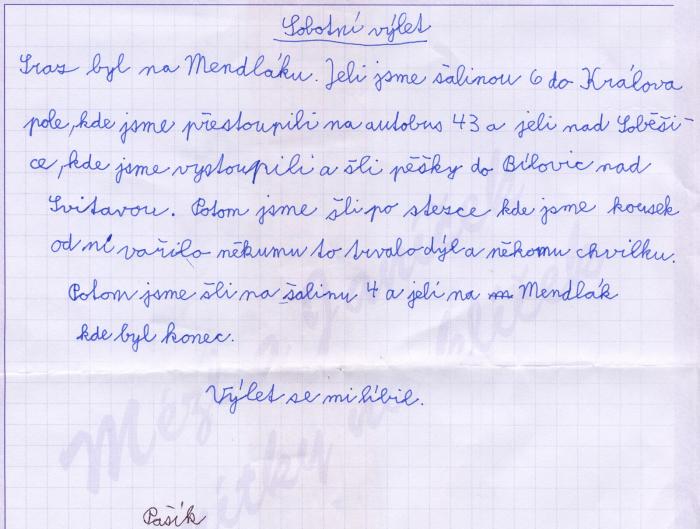 Sobotní výlet
Sraz byl na Mendláku. Jeli jsme šalinou 6 do Králova
pole, kde jsme přestoupili na autobus 43 a jeli nad Soběši-
ce, kde jsme vystoupili a šli pěšky do Bílovic nad
Svitavou. Potom jsme šli po stezce kde jsme kousek
od ní vařilo někumu to trvalo dýl a někomu chvilku.
Potom jsme šli na šalinu 4 a jeli na Mendlák
kde byl konec.
Výlet se mi líbil.
Pašík